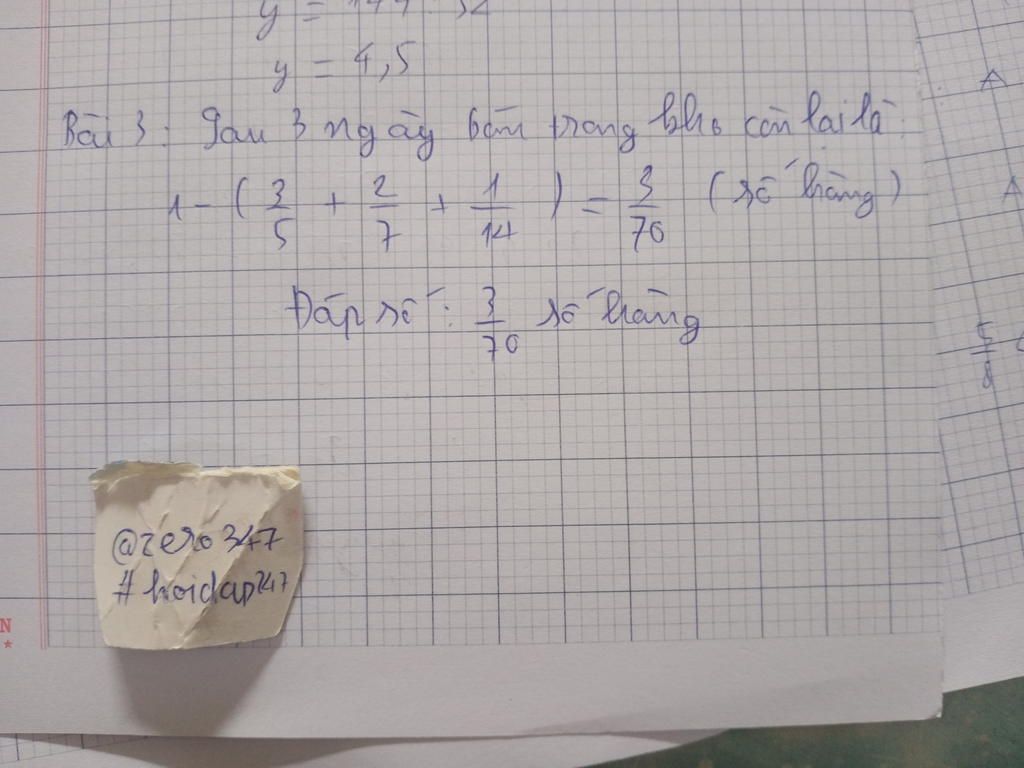 y =
y = 4,5
Bài 3: Sau 3 ngày bán trong kho còn lại là:
1 - ( 3/5 + 2/7 + 1/14 ) = 3/70 ( số hàng )
Đáp số: 3/70 số hàng
5/8
@zero347
# hoidap247
N